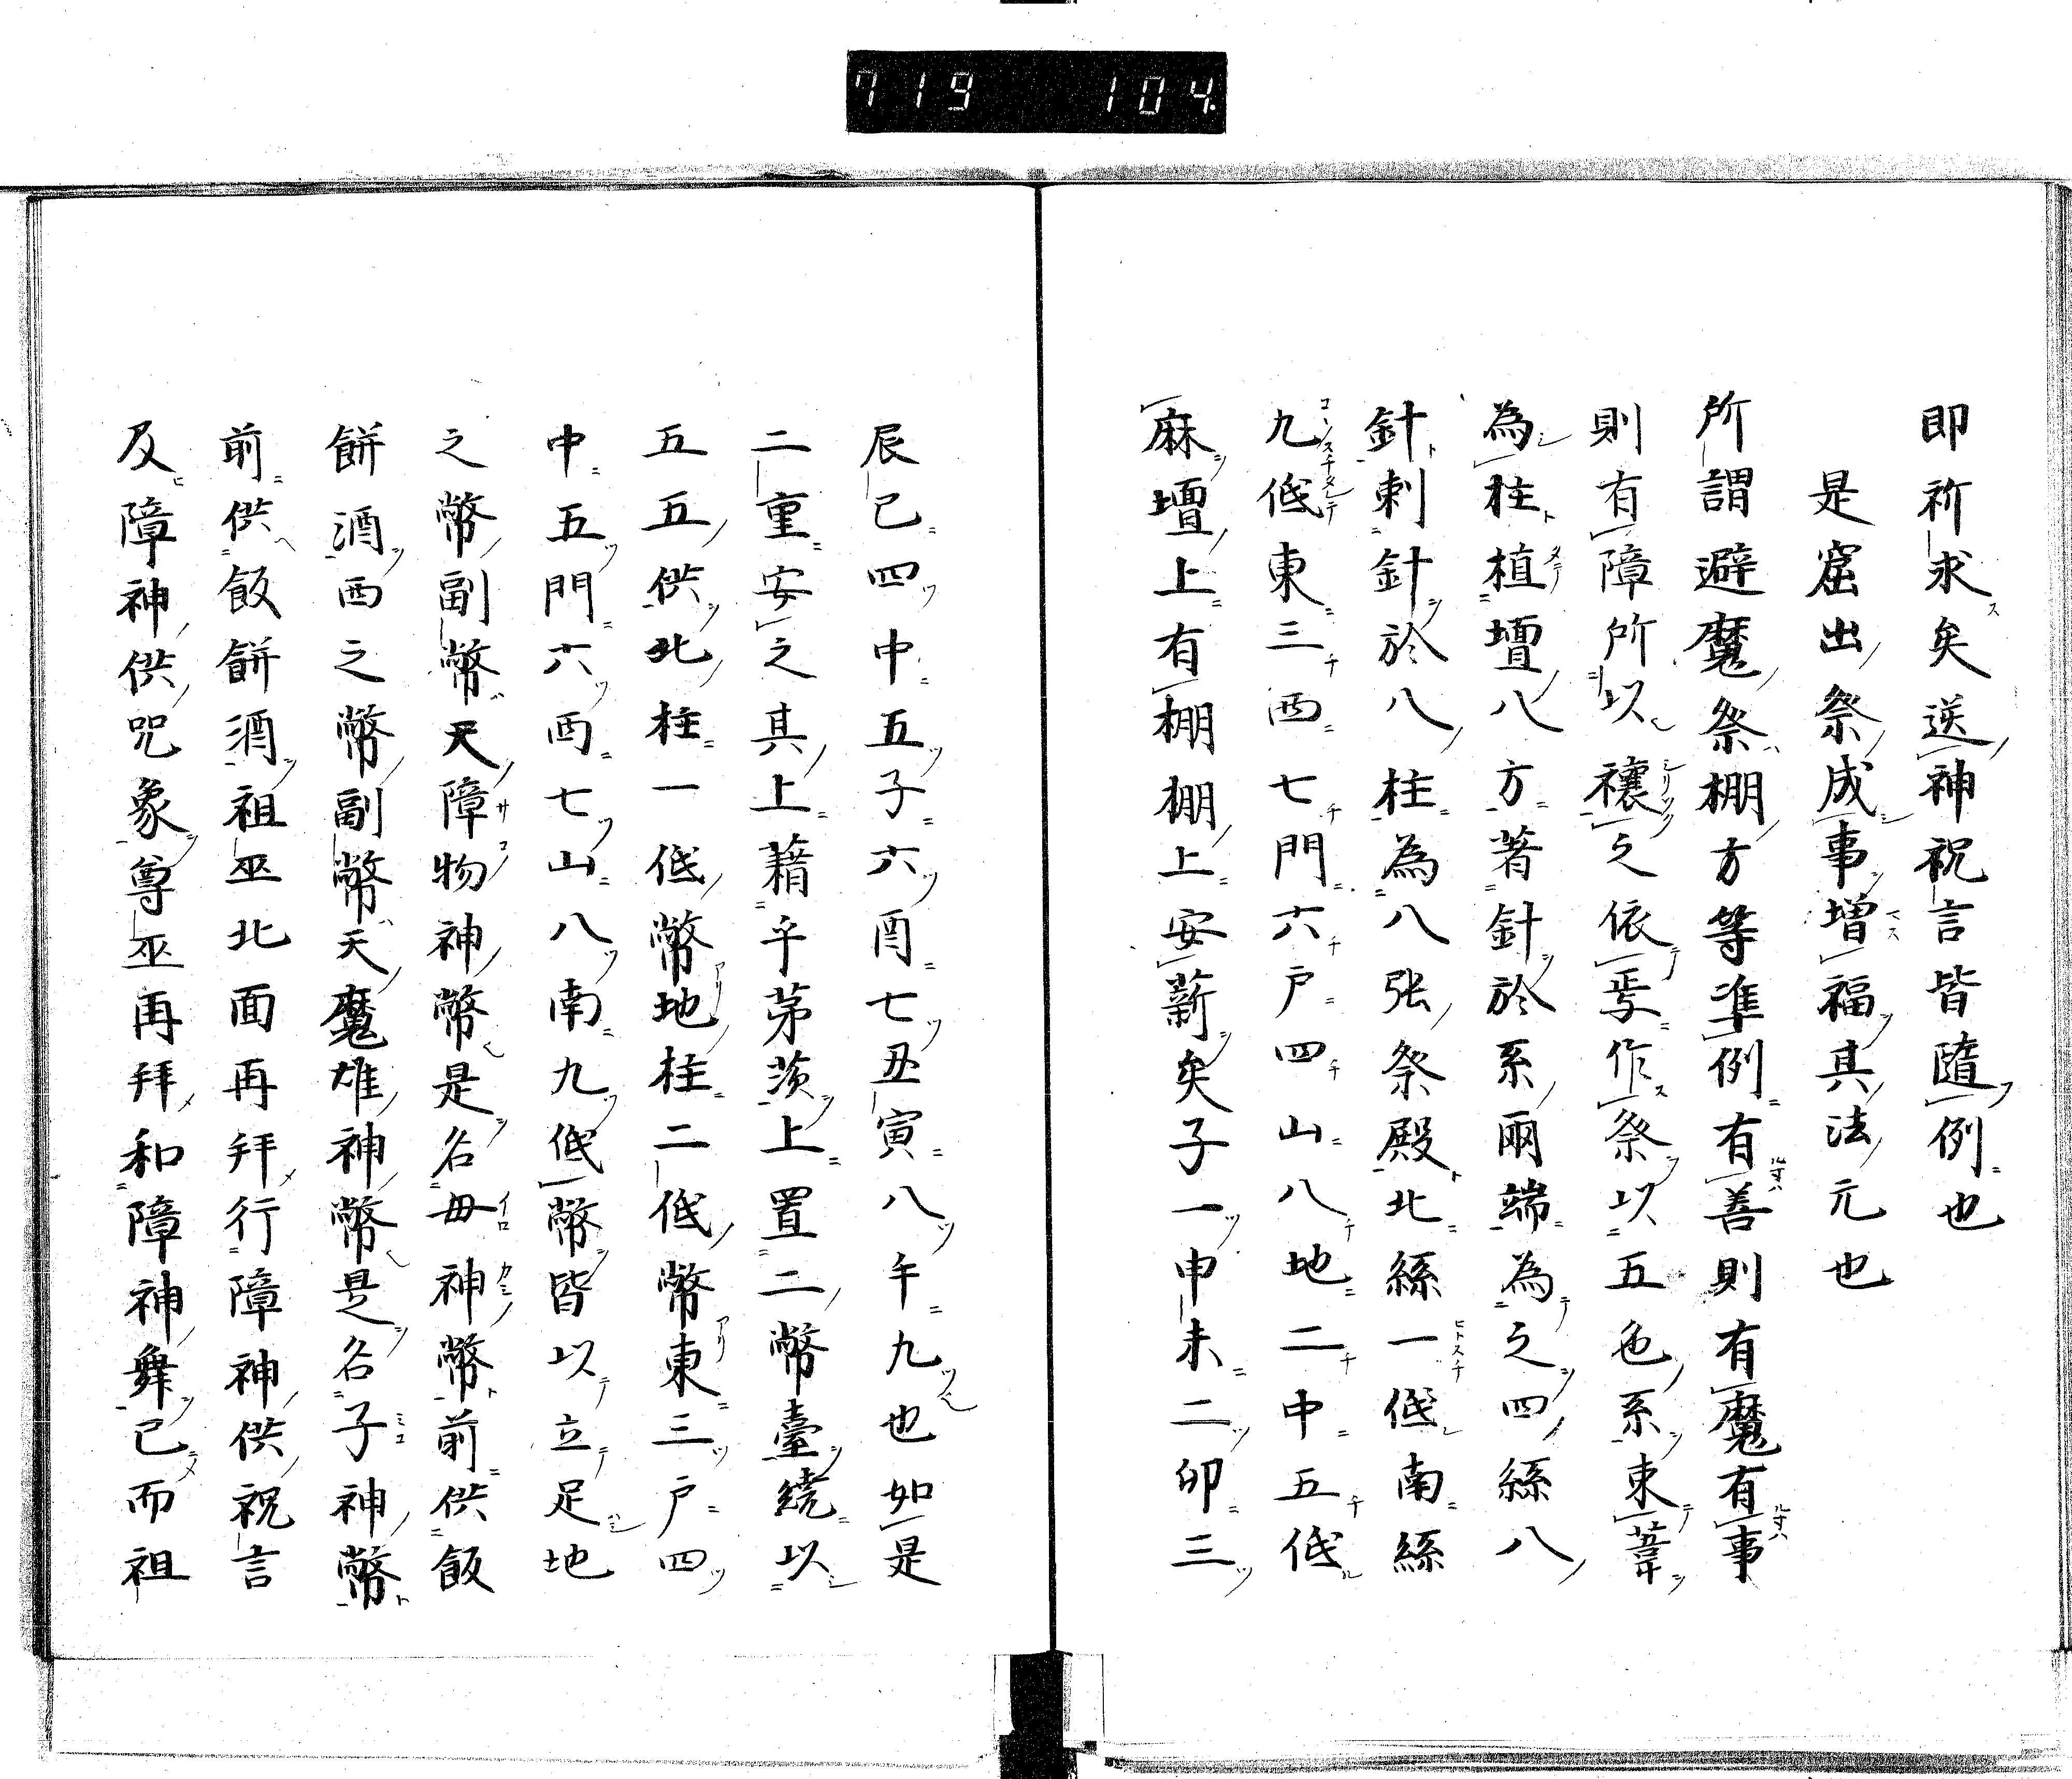 719 104
即祈求矣送神祝言皆隨例也
是窟出祭成事増福其法元也
所謂避魔祭棚方等準例有善則有魔有事
則有障所以禳之依焉作祭以五色系束葦
為柱植壇八方著針於系兩端為之四絲八
針刺針於八柱為八張祭殿北絲一低南絲
九低東三西七門六戸四山八地二中五低
麻壇上有棚棚上安薪矣子一申未二卯三
辰巳四中五子六酉七丑寅八午九也如是
二重安之其上藉乎茅茨上置二幣臺繞以
五五供北柱一低幣地柱二低幣東三戸四
中五門六西七山八南九低幣皆以立足地
之幣副幣天障物神幣是名毋神幣前供飯
餅酒西之幣副幣天魔雄神幣是名子神幣
前供飯餅酒祖巫北面再拜行障神供祝言
及障神供咒象尊巫再拜和障神舞已而祖